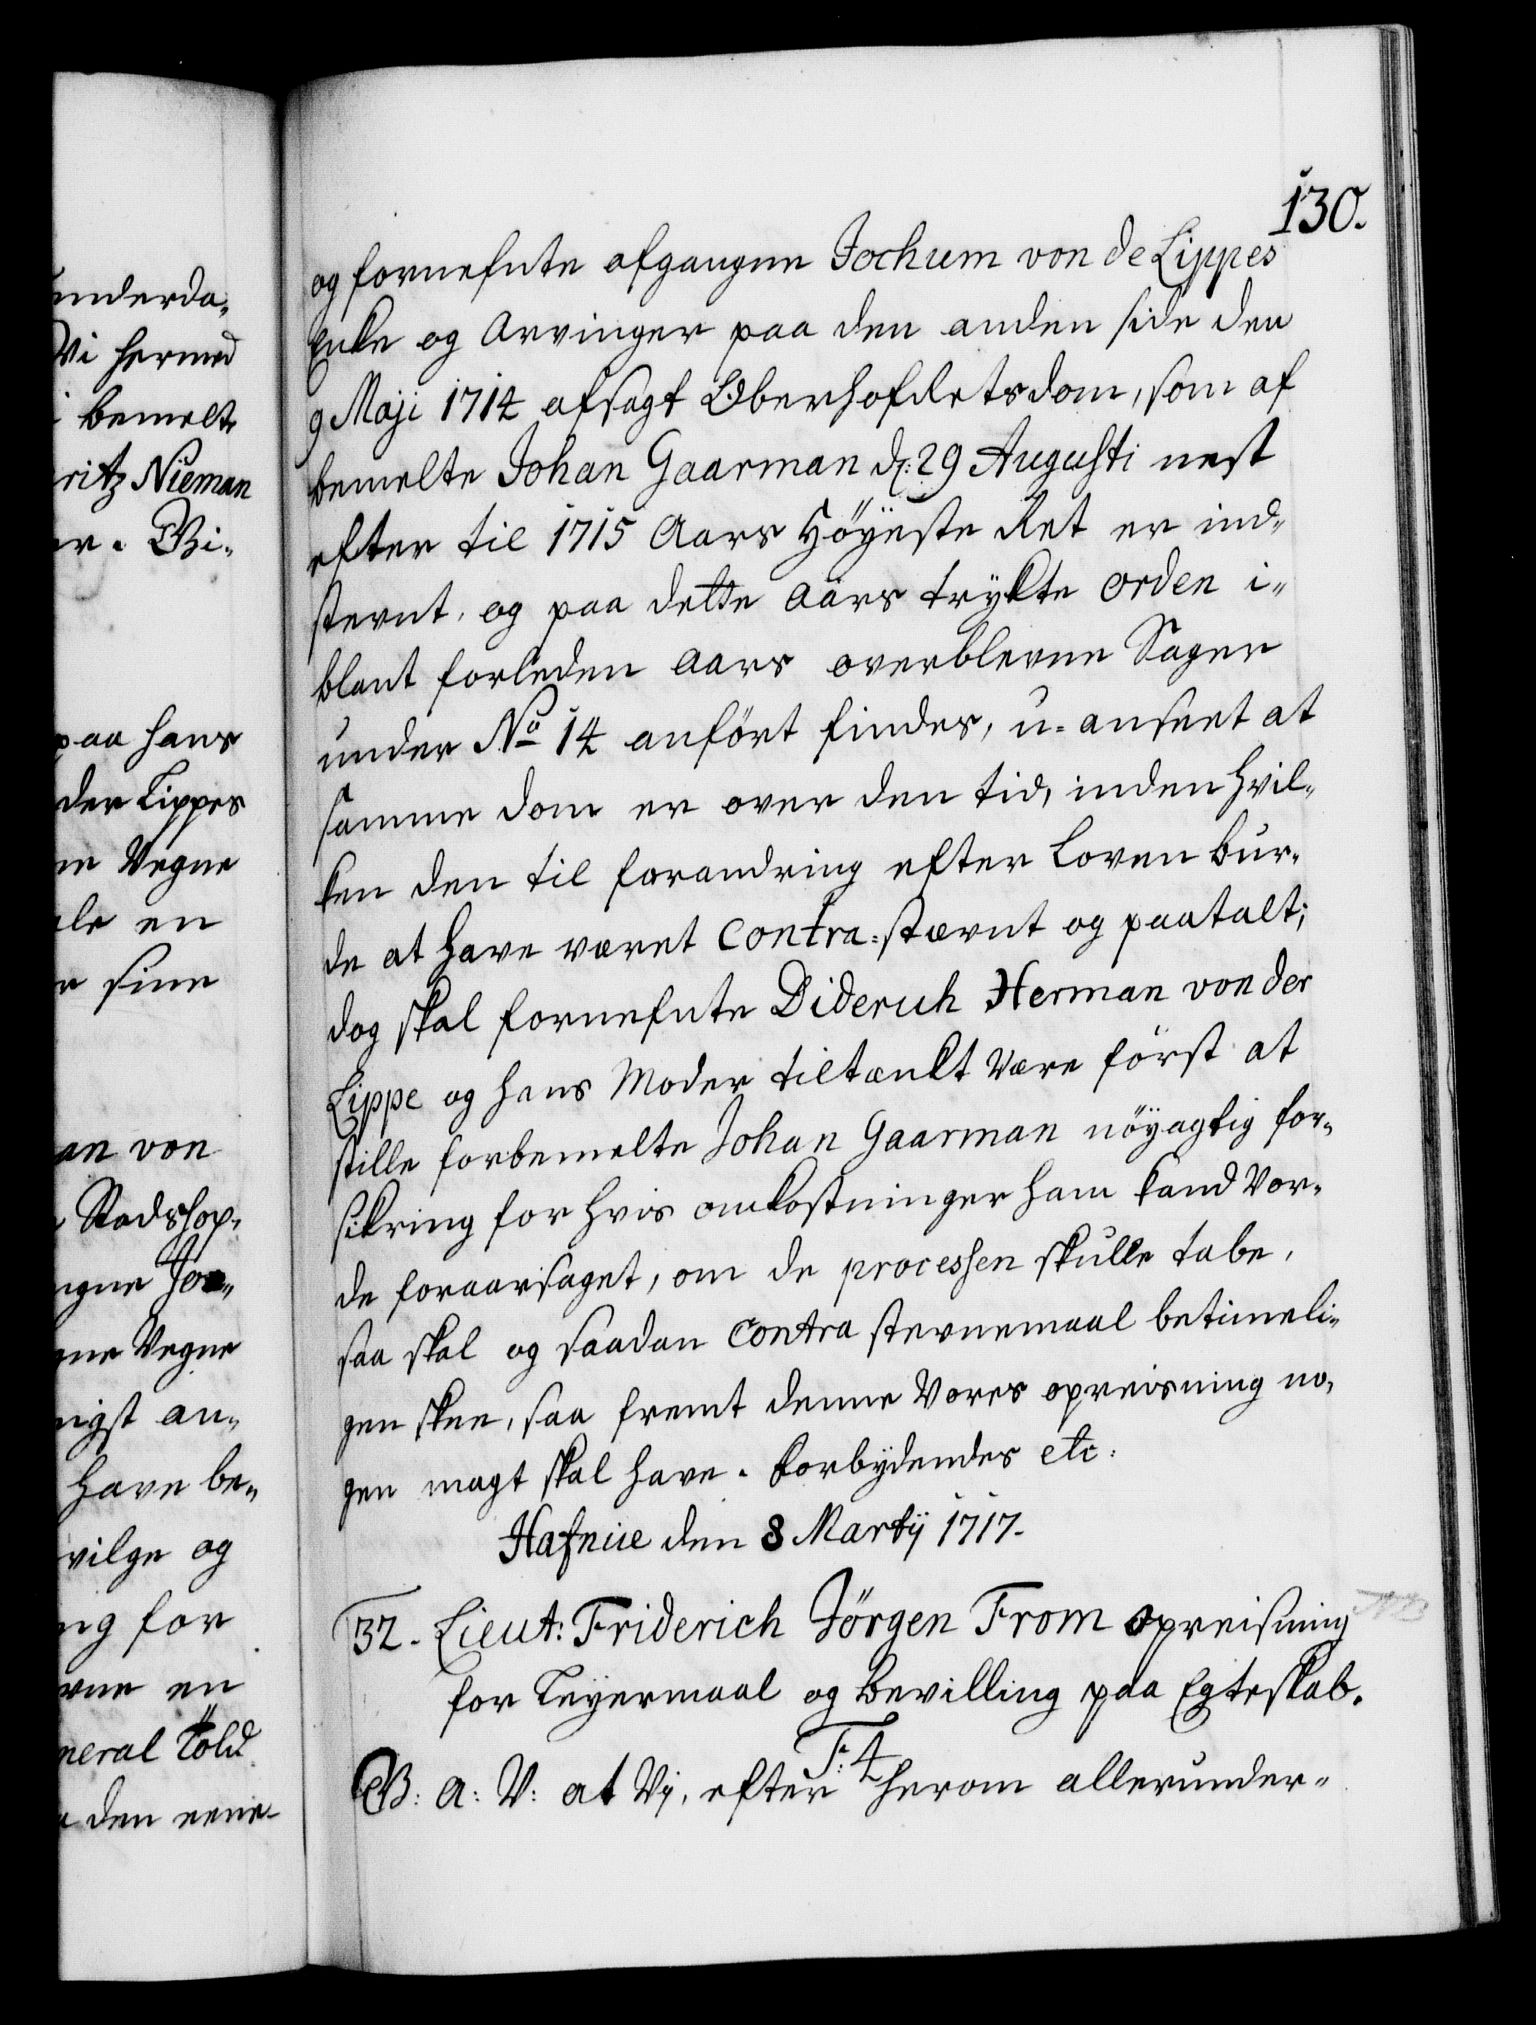 130.
og fornefnte afgangne Jochum von de Lippes
Enke og Arvinger paa den anden side den
9 Maji 1714 afsagt Oberhofrets dom, som af
bemelte Johan Gaarman d: 29 Augusti nest
efter til 1715 Aars Höyeste Ret er ind„
stevnt, og paa dette Aars trykte orden i„
blant forleden Aars overblevne Sager
under No 14 anfört findes, u-anseet at
samme dom er over den tid, inden hvil„
ken den til forandring efter Loven bur„
de at have været Contra-stævnt og paatalt;
dog skal fornefnte Diderich Herman von der
Lippe og hans Moder tiltænkt være först at
stille forbemelte Johan Gaarman nöyagtig for„
sikring for hvis omkostninger ham kand vor„
de foraarsaget, om de processen skulle tabe,
saa skal og saadan Contra stevnemaal betimeli„
gen skee, saa fremt denne Vores opreisning no„
gen magt skal have. Forbydendes etc:
Hafniæ den 8 Martij 1717.
32. Lieut: Friderich Jörgen From opreisning
for Leyermaal og bevilling paa Egteskab.
F: 4
G: A: V: at Vj, efter herom allerunder„
underda„
Vi hermed
i bemelte
ritz Nieman
er. Gi„
paa hans
der Lippes
ne Vegne
ale en
e sine
an von
Stadshop„
ngne Joc„
gne Vegne
nigst an„
have be„
vilge og
ng for
rne en
neral Told
den eene